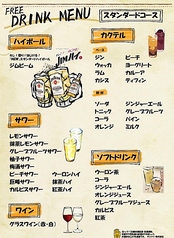 FREE
DRINK MENU
スタンダードコース
ハイボール
ジムビーム
サワー
レモンサワー
抹茶レモンサワー
グレープフルーツサワー
柚子サワー
梅酒サワー
ピーチサワー ウーロンハイ
巨峰サワー 緑茶ハイ
カルピスサワー 紅茶ハイ
ワイン
グラスワイン(赤・白)
カクテル
ジン ピーチ
ウォッカ ヨーグリート
ラム カルーア
カシス ティフィン
ソーダ ジンジャーエール
トニック グレープフルーツ
コーラ パイン
オレンジ ミルク
ソフトドリンク
ウーロン茶
コーラ
ジンジャーエール
オレンジジュース
グレープフルーツジュース
カルピス
紅茶